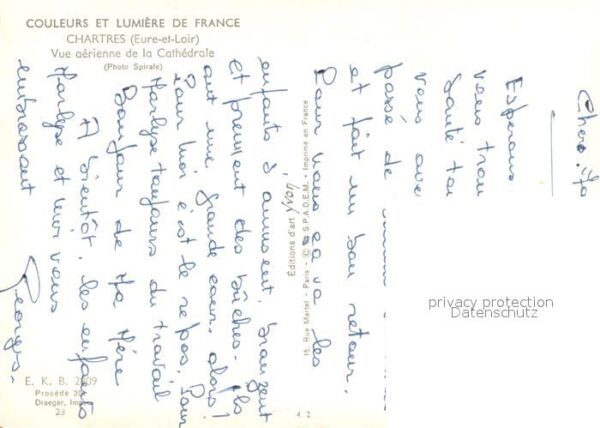 COULEURS ET LUMIÈRE DE FRANCE
CHARTRES (Eure-et-Loir)
Vue aérienne de la Cathédrale
(Photo Spirale)
Chers
Esperons
vous trou
Santé tou
vous ave
passé de
et fait un bon retour.
Pour nous ça va les
enfants s'amusent, bronzent
et prennent des bûches. Ils
ont une grande cour, alors !
Pour moi c'est le repos. Pour
Marlyse toujours du travail
Bonjour de Ma Mère
A bientôt, les enfants
Marlyse et lui vous
embrassent
Georges.
Éditions d'art Yvon
15, Rue Martel - Paris - © S.P.A.D.E.M. - Imprimé en France
privacy protection
Datenschutz
E. K. B. 2009
Procédé 301
Draeger, Imp.
28
4 2